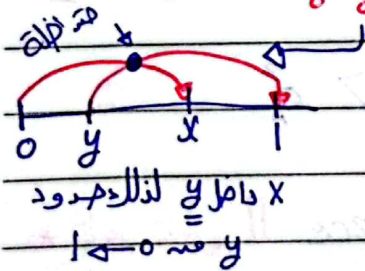 متداخلة
0 y x 1
x داخل y لذلك حدود
y من 0 → 1